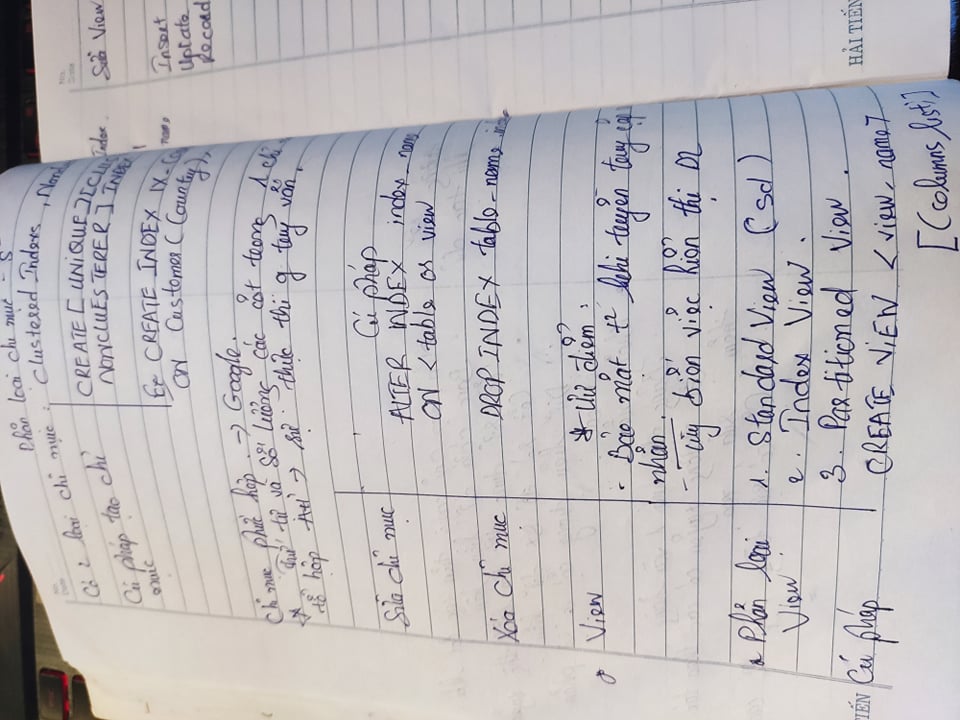 Phân loại chỉ mục - S
No.
Date
Có 2 loại chỉ mục : Clustered Indexs, Noncl
Cú pháp tạo chỉ mục
CREATE [UNIQUE][CLUS
NONCLUESTERER] INDEX
Ex CREATE INDEX IX-Cou
ON Customer (Country),
Chỉ mục phức hợp. → Google.
* Thứ tự và số lượng các cột trong 1 chỉ
tổ hợp → sự thực thi q truy vấn.
Sửa chỉ mục
Cú pháp
ALTER INDEX index_name
ON < table or view
Xóa chỉ mục
DROP INDEX table-name inde
View
* Ưu điểm :
- Bảo mật t² khi truyền truy cập
nhận.
- Tùy biến việc hiển thị DL
Phân loại
View
1. Standard View (sd)
2. Index View.
3. Partitioned View.
TIẾN
Cú pháp
CREATE VIEW <view_name>
[(columns_list)]
No.
Date
Index.
name
Sửa View
Insert
Uptate
Record
HẢI TIẾN